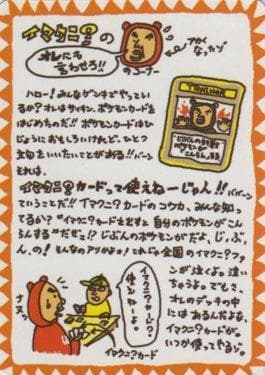 イマクニ?の
オレにも
言わせろ!!
のコーナー
アカく
なったゾ
TRAINER
じぶんの
ポケモンが
こんらん
ハロー!みんなゲンキでやってい
るか?オレはサイキン、ポケモンカードを
はじめたゼ!!ポケモンカードはひ
じょうにおもしろいけれど、ひとつ
だけ言いたいことがある!!バーン
それは、
イマクニ?カードって使えねーじゃん!!バババーン
ていうことだ!!イマクニ?カードのコウカ、みんな知っ
てるか?"イマクニ?カードを出すと自分のポケモンがこん
らんする"だぜっ!?じぶんのポケモンがだよ、じ、ぶ、
ん、の!そんなのアリかよォ!これでは全国のイマクニ?ファン
が泣くよ。泣い
ちゃうよ。でもさ、
オレのデッキの中
には あるんだよな、
イマクニ?カードが。
いつか使ってやるゾ。
イマクニ?カード?
使えねーよ。
ナヌッ
イマクニ?カード